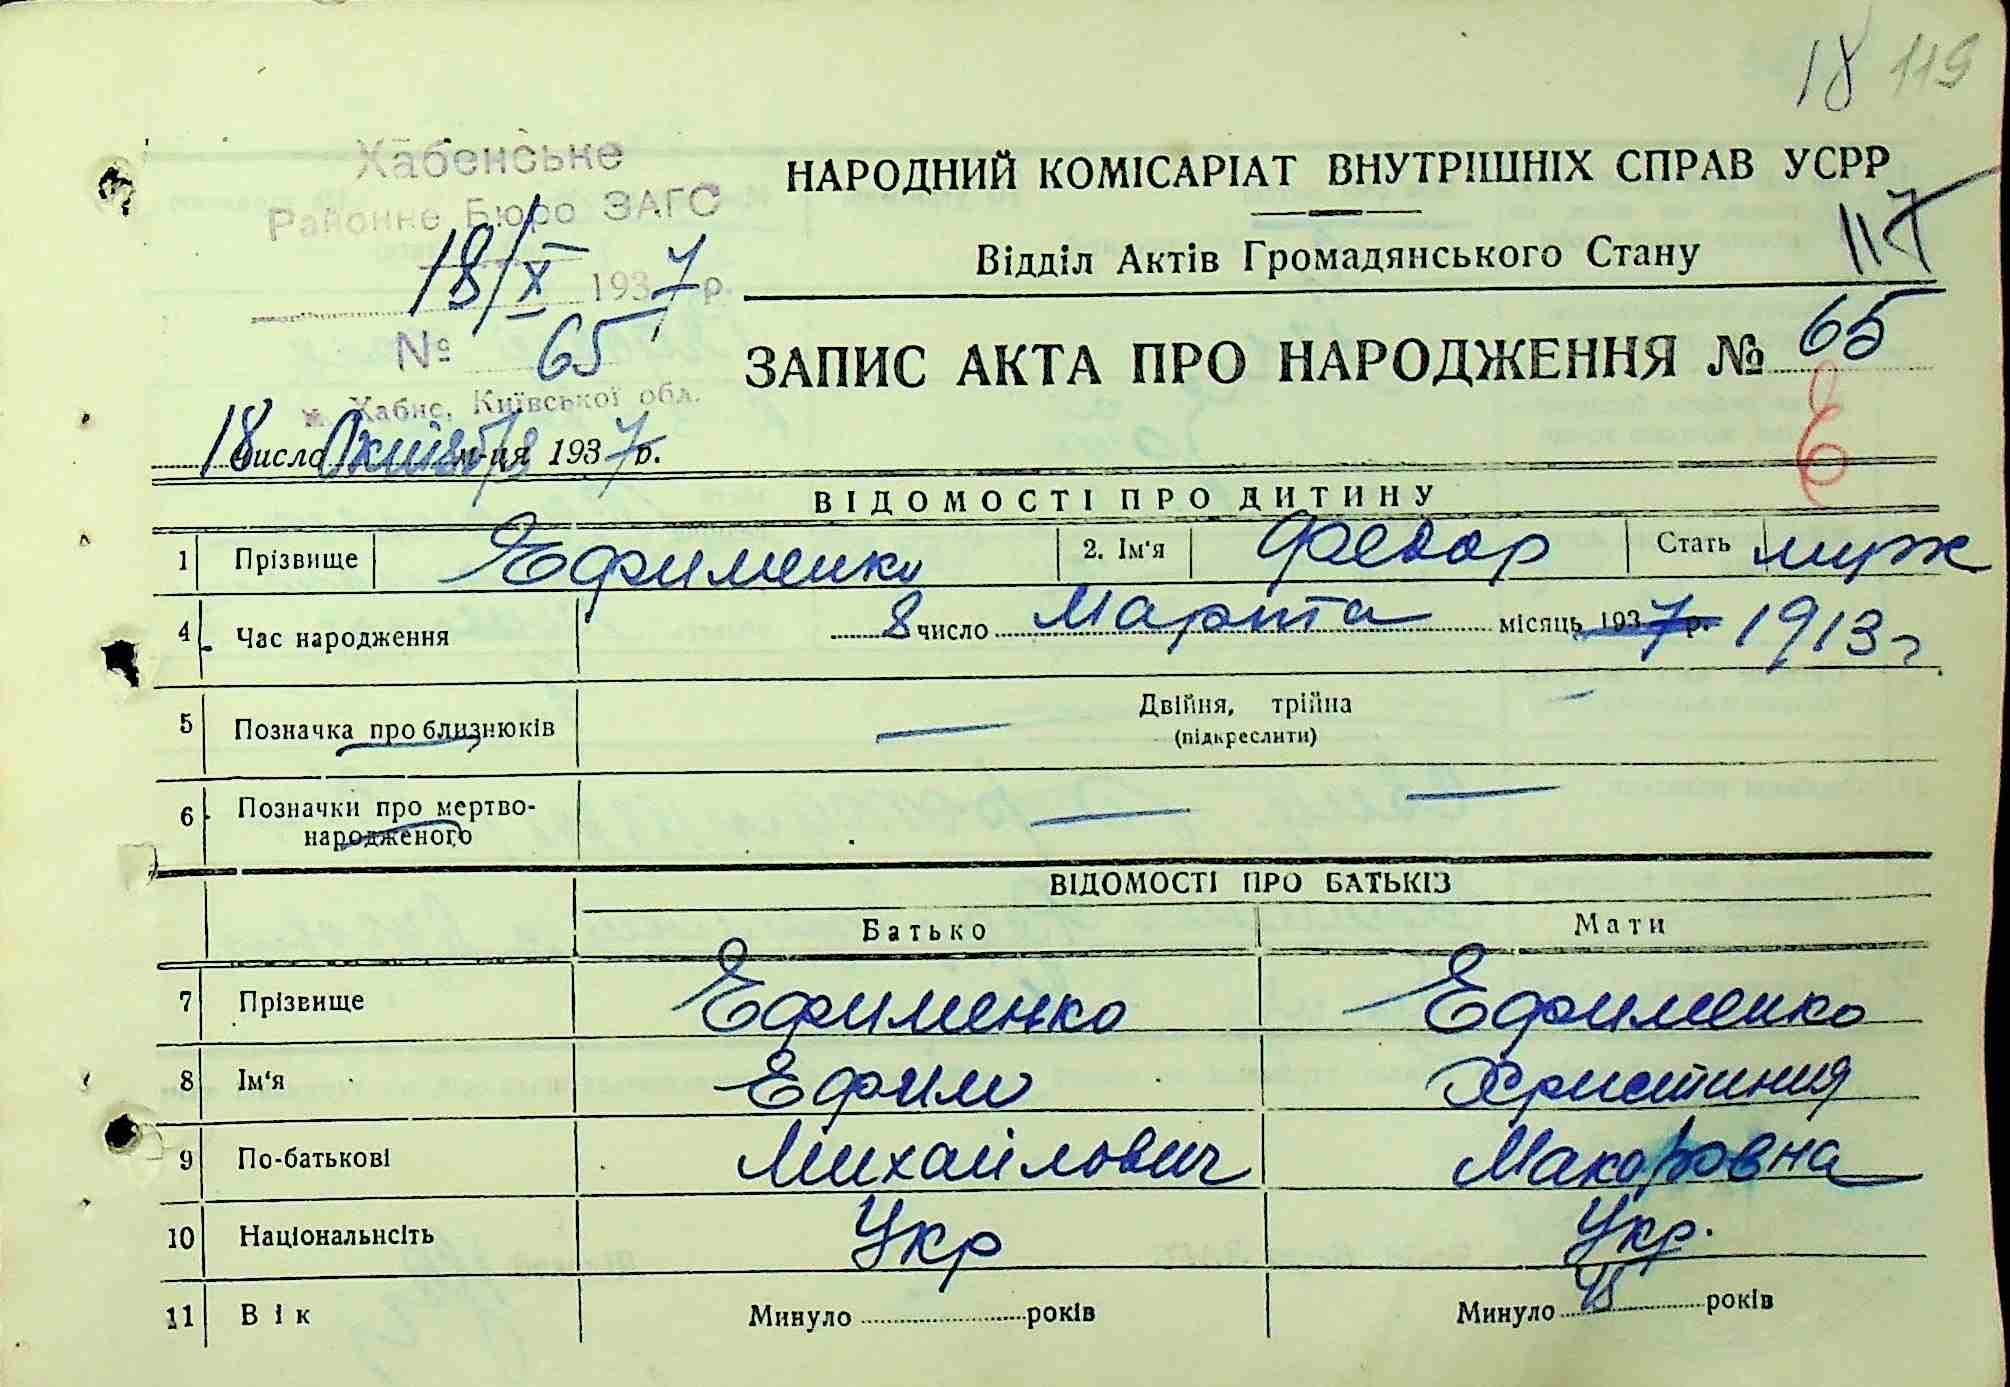 18 119
Хабенське
Районне Бюро ЗАГС
18/X 1937 р.
№ 65
м. Хабнє, Київської обл.
НАРОДНИЙ КОМІСАРІАТ ВНУТРІШНІХ СПРАВ УСРР
Відділ Актів Громадянського Стану
117
ЗАПИС АКТА ПРО НАРОДЖЕННЯ № 65
Е
18 число Октября м-ця 1937 р.
ВІДОМОСТІ ПРО ДИТИНУ
1 Прізвище Ефименко 2. Ім'я Федор Стать муж
4 Час народження 8 число Марта місяць 1937 р. 1913 г
5 Позначка про близнюків — Двійня, трійна —
(підкреслити)
6 Позначки про мертво- — —
народженого
ВІДОМОСТІ ПРО БАТЬКІВ
Батько Мати
7 Прізвище Ефименко Ефименко
8 Ім'я Ефим Христиния
9 По-батькові Михайлович Макаровна
10 Національність Укр Укр.
11 Вік Минуло років Минуло років